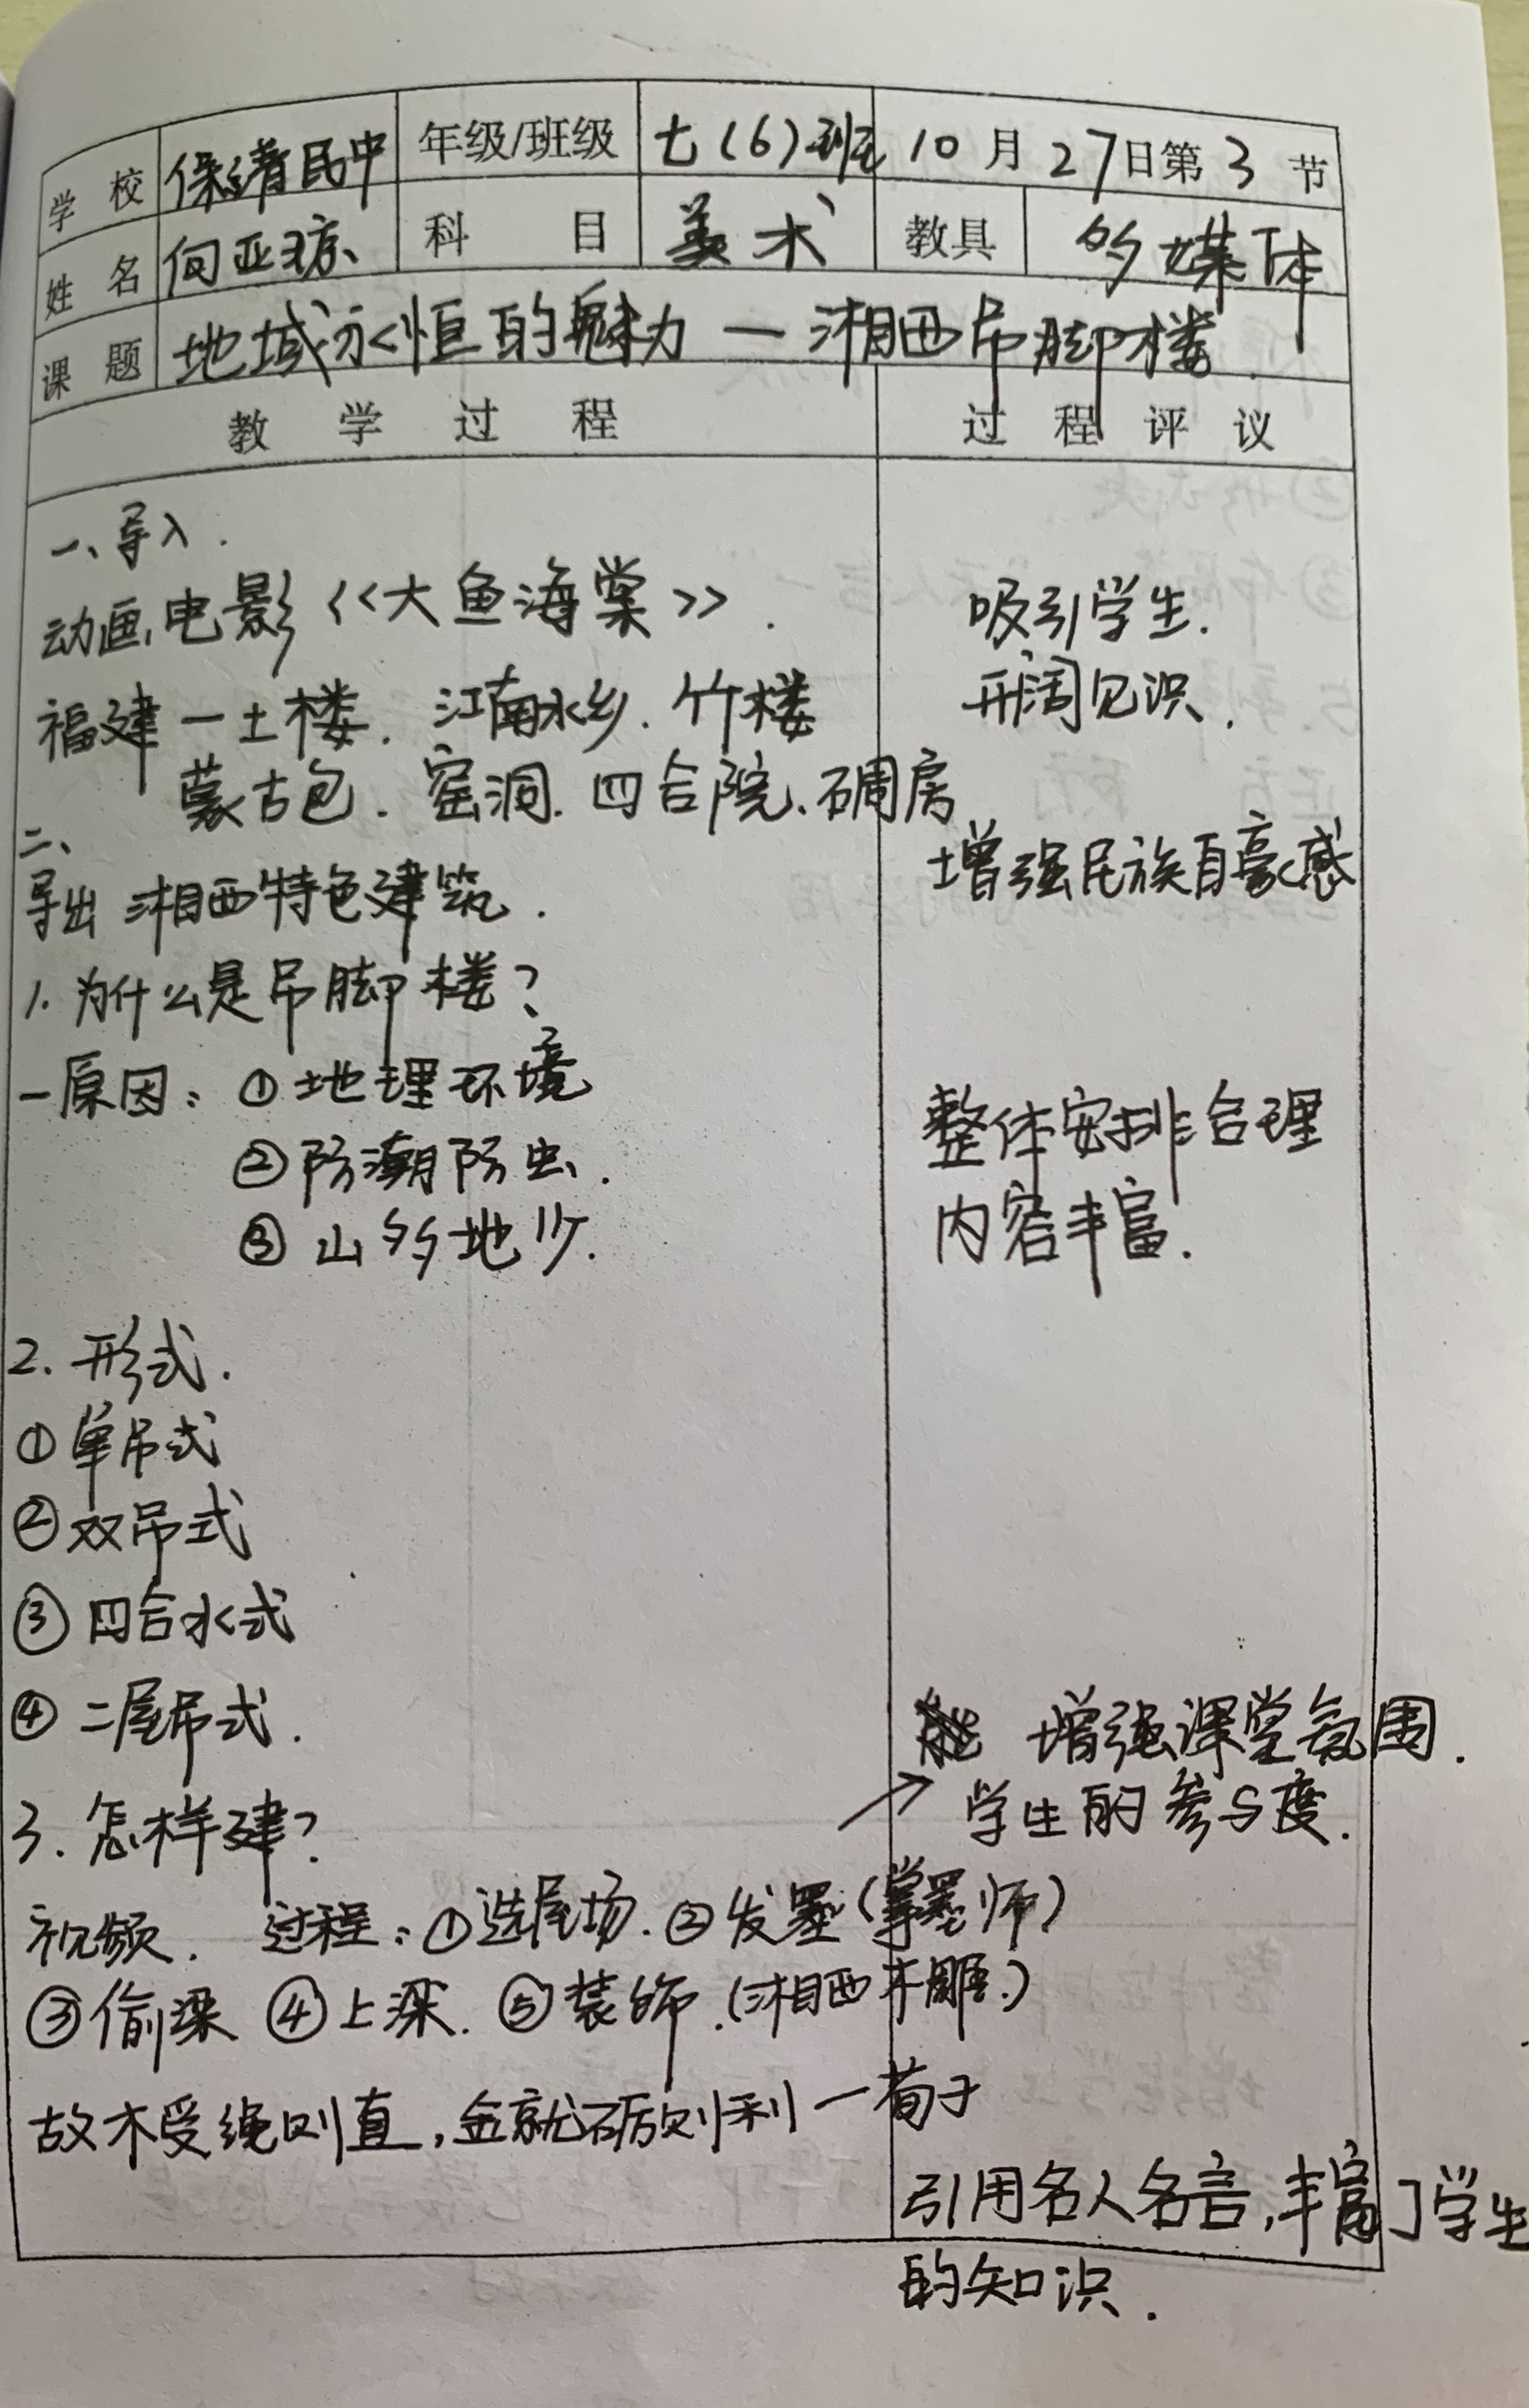 学校 保靖民中 年级/班级 七(6)班 10月27日第3节
姓名 向亚琼 科目 美术 教具 多媒体
课题 地域永恒的魅力—湘西吊脚楼.
教学过程 过程评议
一、导入.
动画电影《大鱼海棠》. 吸引学生.
福建—土楼. 江南水乡. 竹楼 开阔见识.
蒙古包. 窑洞. 四合院、碉房
二、
导出湘西特色建筑. 增强民族自豪感
1.为什么是吊脚楼?
—原因:①地理环境
②防潮防虫. 整体安排合理
③山多地少. 内容丰富.
2.形式.
①单吊式
②双吊式
③四合水式
④二屋吊式. 增强课堂氛围.
→学生的参与度.
3.怎样建?
视频. 过程:①选屋场.②发墨(掌墨师)
③偷梁 ④上梁. ⑤装饰.(湘西木雕.)
故木受绳则直,金就砺则利—荀子
引用名人名言,丰富了学生
的知识.